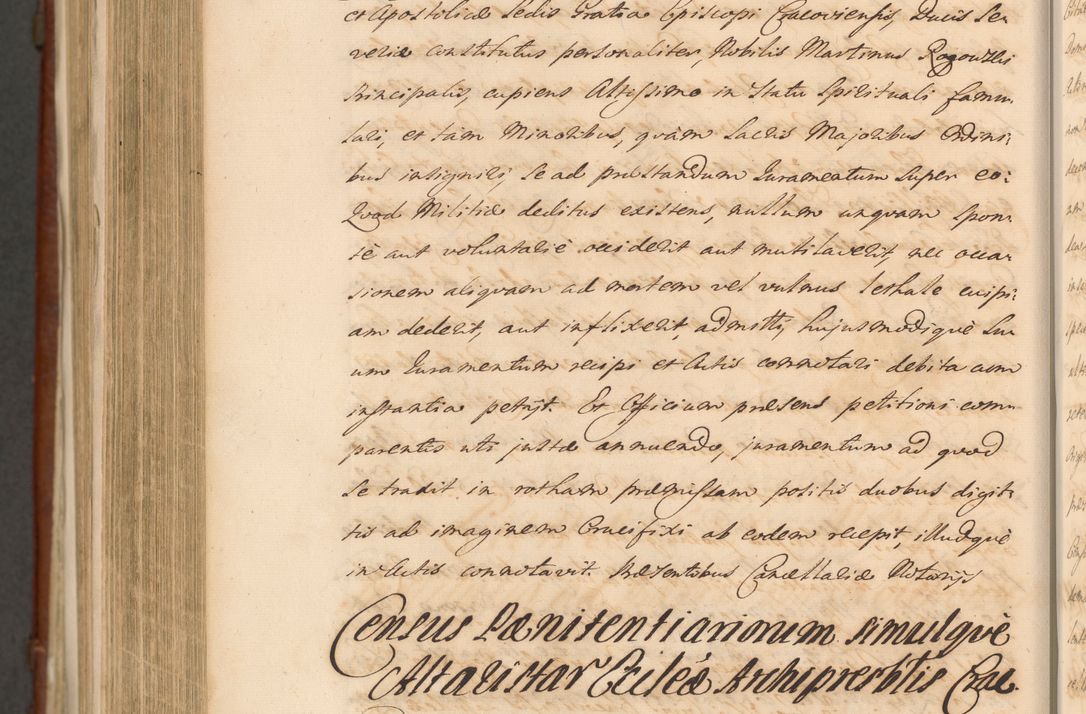 et Apostolicæ Sedis Gratia Episcopi Cracoviensis, Ducis Se-
veriæ constitutus personaliter, Nobilis Martinus Rogowski
Principalis, cupiens Altissimo in Statu Spirituali famu-
lari, et tam Minoribus, quàm Sacris Majoribus Ordini-
bus insigniri, Se ad præstandum Iuramentum Super eo:
Quod Militiæ deditus existens, nullum unquam spon-
tè aut voluntariè occiderit aut mutilaverit, nec occa-
sionem aliquam ad mortem vel vulnus lethale cuipi-
am dederit, aut inflixerit, admitti, hujusmodiquè Su-
um Iuramentum recipi et Actis connotari debita cum
instantia petijt. Et Officium præsens petitioni com-
parentis uti justæ annuendo, juramentum ad quod
Se tradit in rotham præmissam positis duobus digit-
tis ad imaginem Crucifixi ab eodem recepit, illudquè
in Actis connotavit. Præsentibus Cancellariæ Notarijs
Census Pœnitentiariorum simulquè
Altaristar Eccleæ Archipresbtlis Crac.